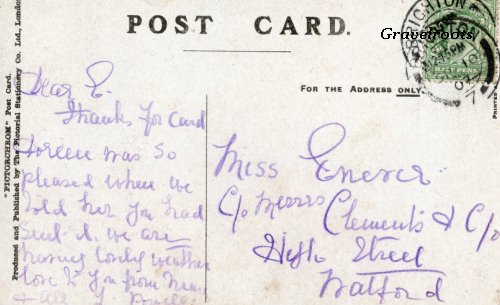 POST CARD.
Gravelroots
BRIGHTON
FOR THE ADDRESS ONLY
"PICTORCHROM" Post Card.
Produced and Published by The Pictorial Stationery Co. Ltd., London
PRINTED
Dear E.
Thanks for card
Doreen was so
pleased when we
told her you had
sent it. we are
having lovely weather
love to you from
& All
Miss Enever.
C/o Messrs
Clements & C/o
High Street
Watford